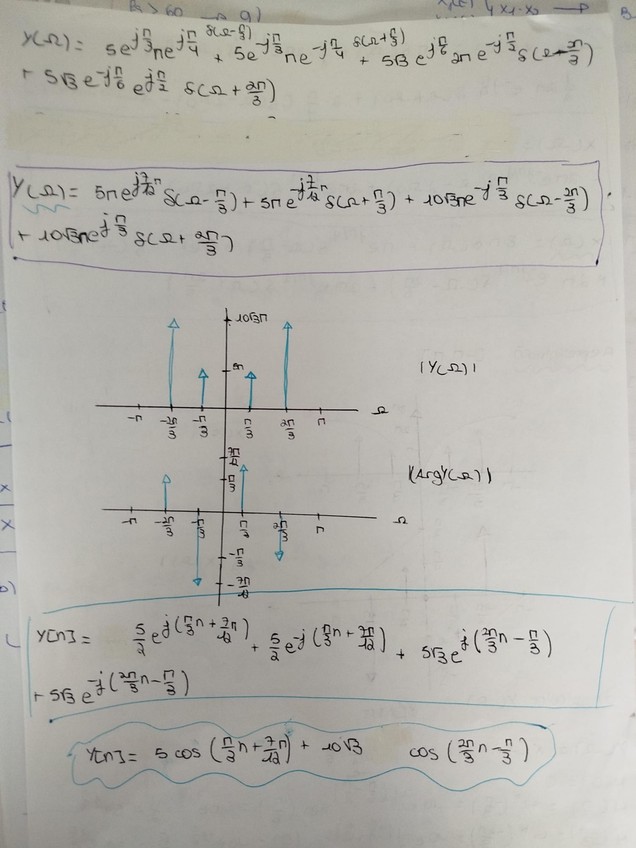 B₁ > 60 → 9)
4x₁·x₂ → P
Y(Ω) = 5e^{jπ/3}πe^{jπ/4} δ(Ω-π/3) + 5e^{-jπ/3}πe^{-jπ/4} δ(Ω+π/3) + 5√3 e^{jπ/6} 2πe^{-jπ/2} δ(Ω-2π/3)
+ 5√3 e^{-jπ/6} e^{jπ/2} δ(Ω + 2π/3)
Y(Ω) = 5πe^{j7/12π} δ(Ω-π/3) + 5πe^{-j7/12π} δ(Ω+π/3) + 10√3πe^{-jπ/3} δ(Ω-2π/3)
+ 10√3πe^{jπ/3} δ(Ω + 2π/3)
10√3π
5π
|Y(Ω)|
-π -2π/3 -π/3 π/3 2π/3 π Ω
7π/12
π/3
(ArgY(Ω))
-π -2π/3 -π/3 π/3 2π/3 π Ω
-π/3
-7π/12
Y[n] = 5/2 e^{j(π/3 n + 7π/12)} + 5/2 e^{-j(π/3 n + 7π/12)} + 5√3 e^{j(2π/3 n - π/3)}
+ 5√3 e^{-j(2π/3 n - π/3)}
Y[n] = 5 cos (π/3 n + 7π/12) + 10√3 cos (2π/3 n - π/3)